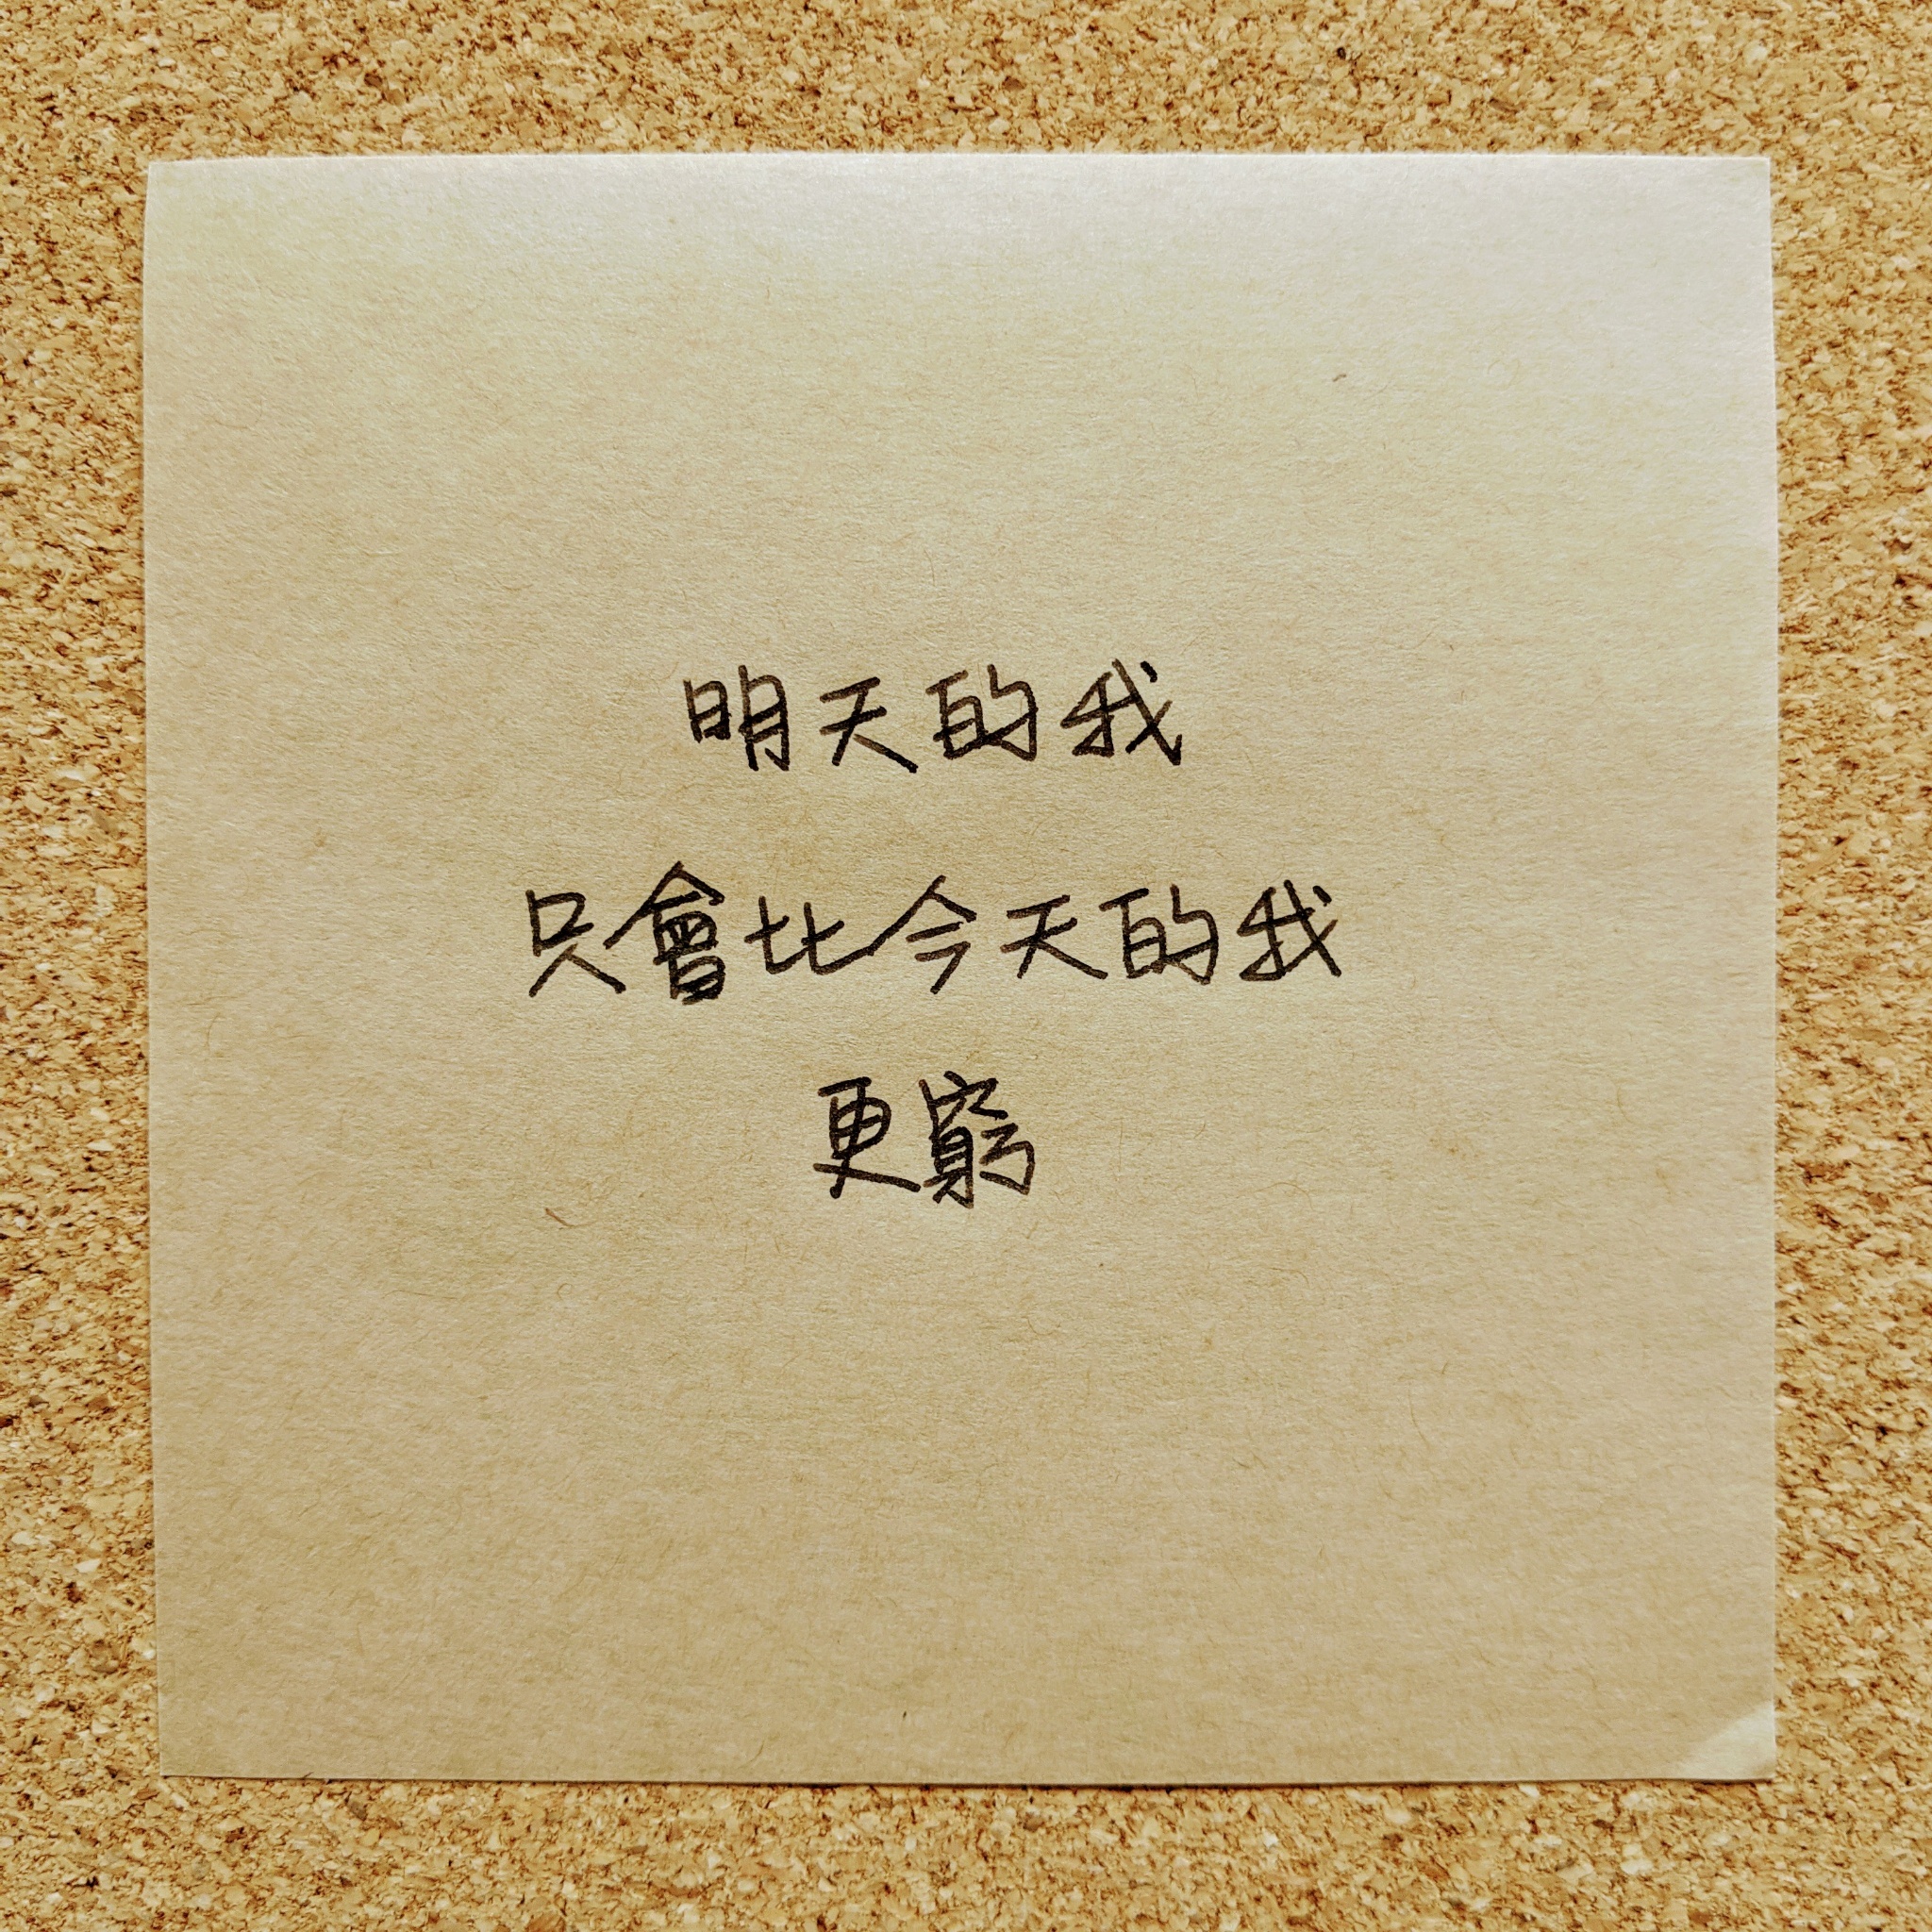 明天的我
只會比今天的我
更窮